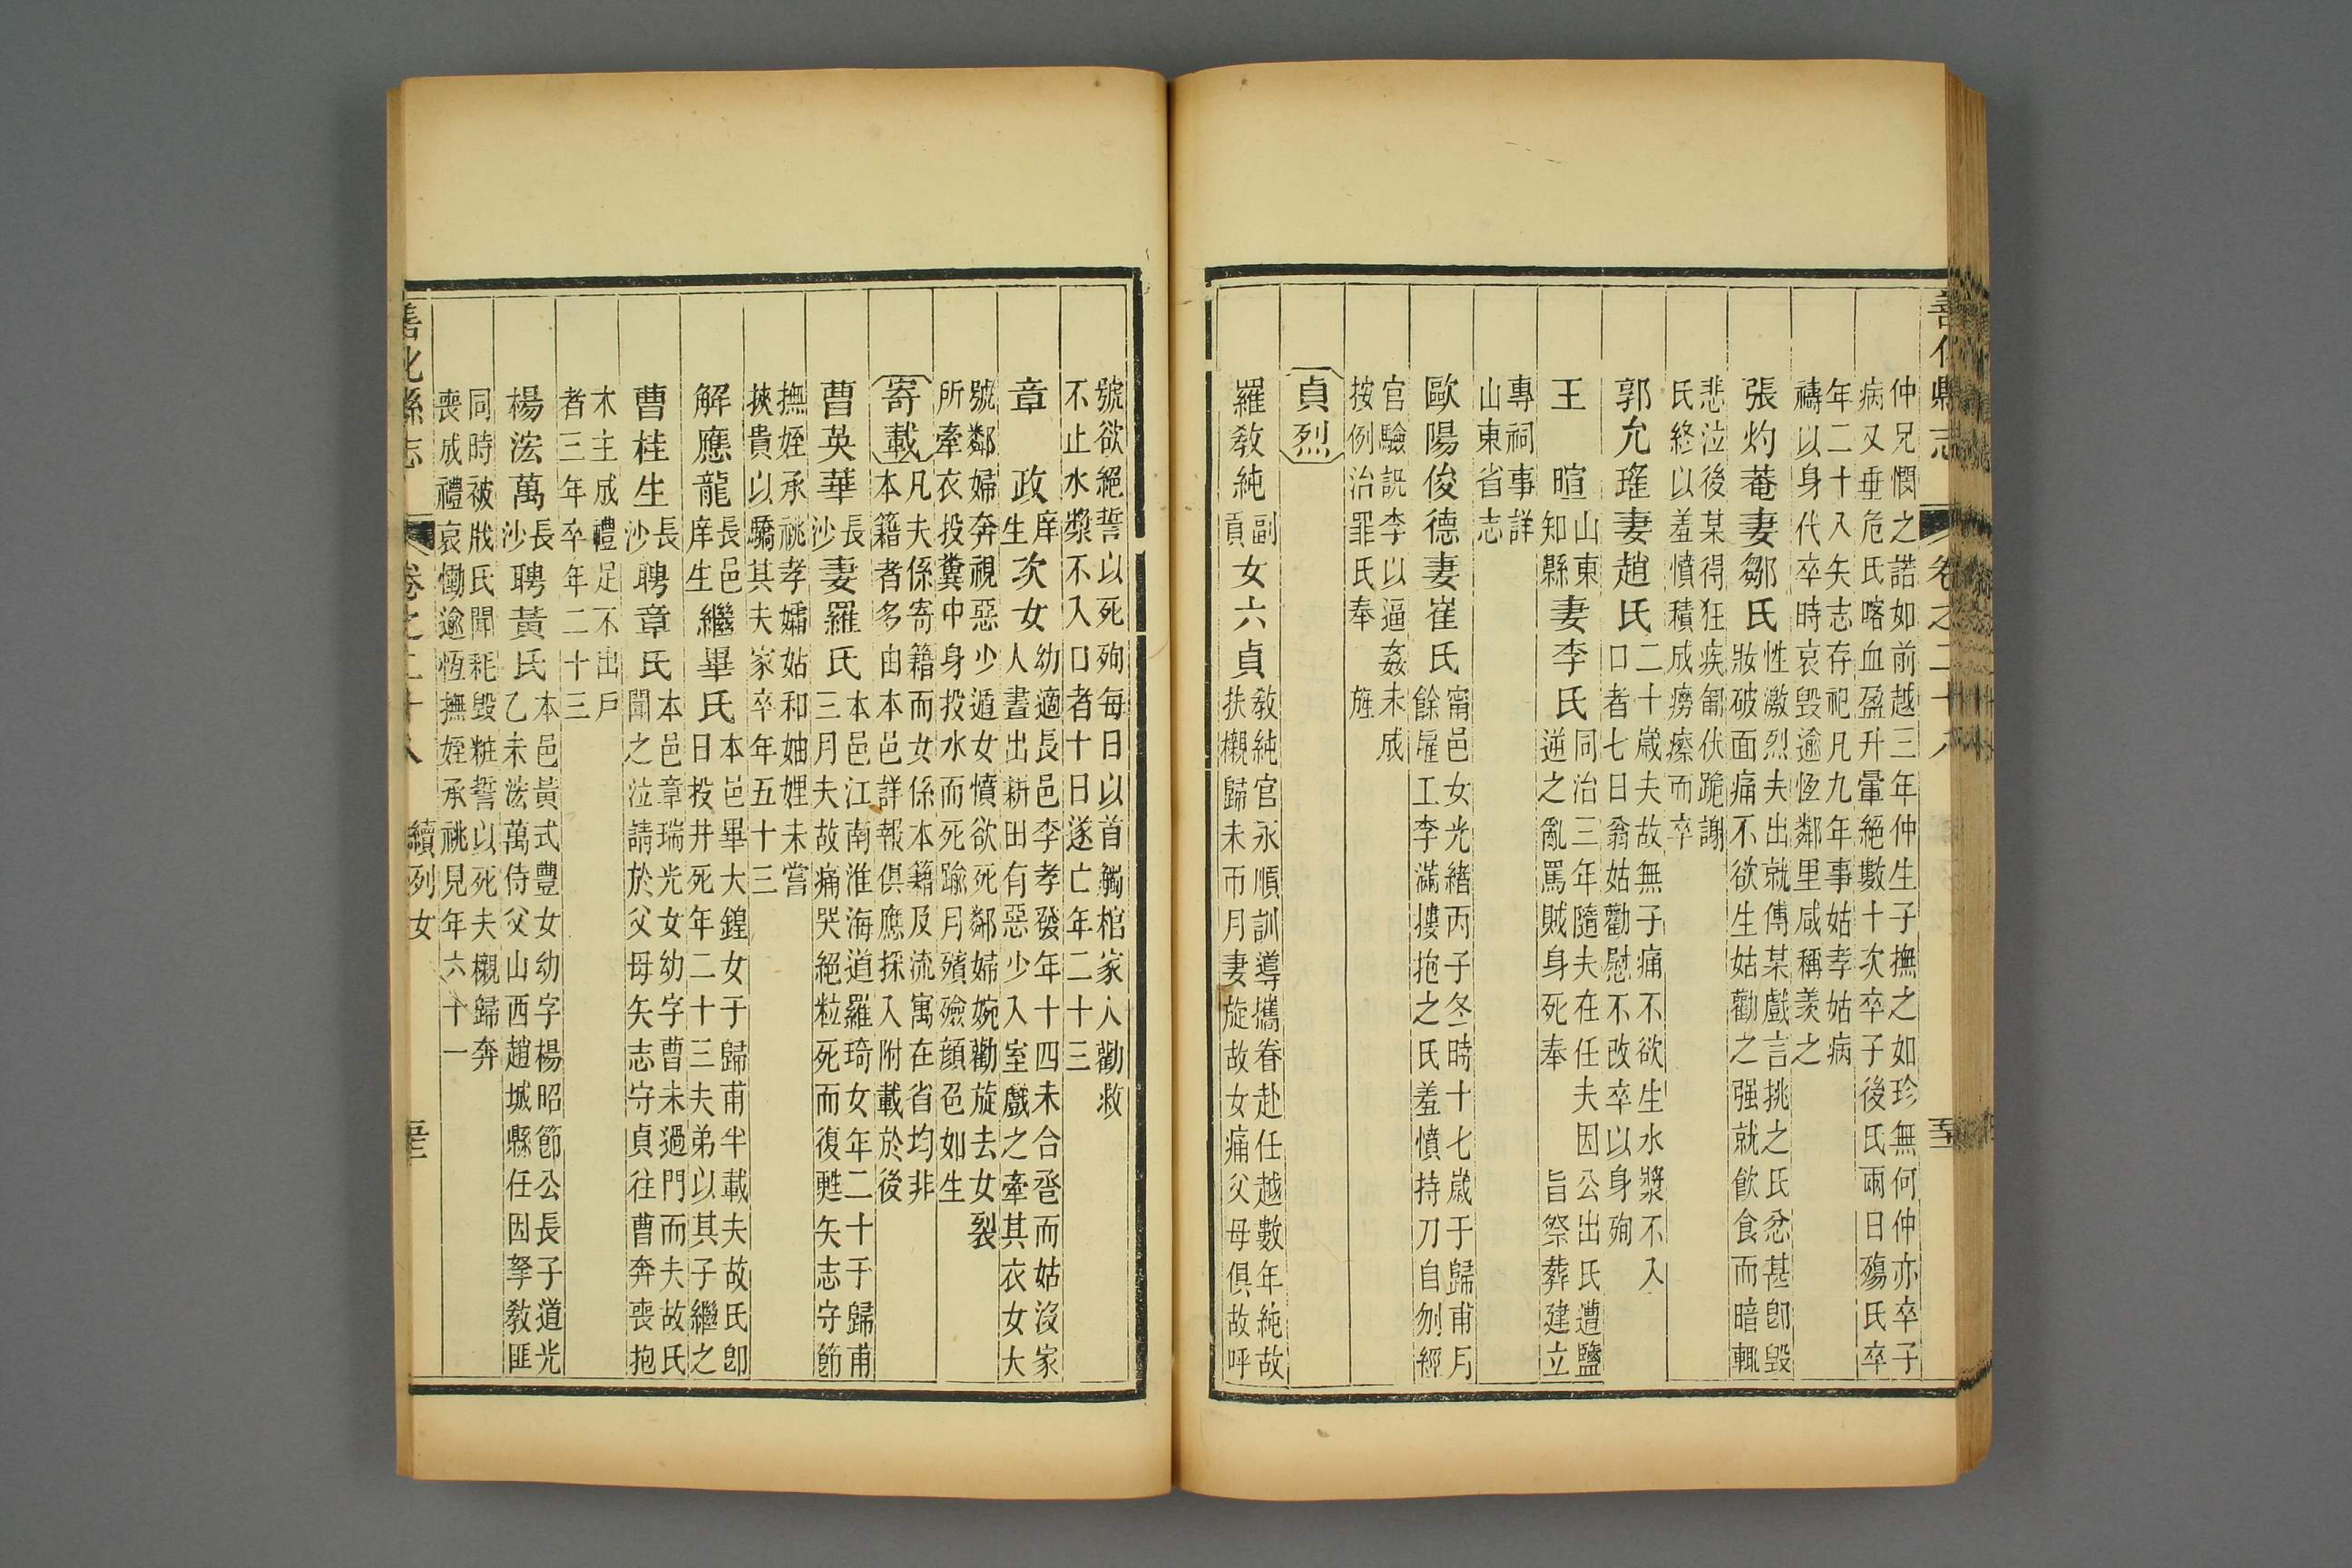 善化縣志 卷之二十八
仲兄憫之諾如前越三年仲生子撫之如珍無何仲亦卒子
病又垂危氏喀血盈升暈絕數十次卒子後氏兩日殤氏卒
年二十入矢志存祀凡九年事姑孝姑病
禱以身代卒時哀毀逾恆鄰里咸稱羨之
張灼菴妻鄒氏
性激烈夫出就傅某戲言挑之氏忿甚卽毀
妝破面痛不欲生姑勸之强就飮食而暗輒
悲泣後某得狂疾匍伏跪謝
氏終以羞憤積成癆瘵而卒
郭允瑤妻趙氏
二十歲夫故無子痛不欲生水漿不入
口者七日翁姑勸慰不改卒以身殉
王 暄
山東
知縣
妻李氏
同治三年隨夫在任夫因公出氏遭鹽
逆之亂罵賊身死奉 旨祭葬建立
專祠事詳
山東省志
歐陽俊德妻崔氏
甯邑女光緖丙子冬時十七歲于歸甫月
餘雇工李滿摟抱之氏羞憤持刀自刎經
官驗訊李以逼姦未成
按例治罪氏奉 旌
貞烈
羅敎純
副
貢
女六貞
敎純官永順訓導攜眷赴任越數年純故
扶櫬歸未帀月妻旋故女痛父母俱故呼
號欲絕誓以死殉每日以首觸棺家人勸救
不止水漿不入口者十日遂亡年二十三
章 政
庠
生
次女
幼適長邑李孝發年十四未合卺而姑沒家
人晝出耕田有惡少入室戲之牽其衣女大
號鄰婦奔視惡少遁女憤欲死鄰婦婉勸旋去女裂
所牽衣投糞中身投水而死踰月殯殮顏色如生
寄載
凡夫係寄籍而女係本籍及流寓在省均非
本籍者多由本邑詳報俱應採入附載於後
曹英華
長
沙
妻羅氏
本邑江南淮海道羅琦女年二十于歸甫
三月夫故痛哭絕粒死而復甦矢志守節
撫姪承祧孝孀姑和妯娌未嘗
挾貴以驕其夫家卒年五十三
解應龍
長邑
庠生
繼畢氏
本邑畢大鍠女于歸甫半載夫故氏卽
日投井死年二十三夫弟以其子繼之
曹桂生
長
沙
聘章氏
本邑章瑞光女幼字曹未過門而夫故氏
聞之泣請於父母矢志守貞往曹奔喪抱
木主成禮足不出戶
者三年卒年二十三
楊浤萬
長
沙
聘黃氏
本邑黃式豐女幼字楊昭節公長子道光
乙未浤萬侍父山西趙城縣任因拏敎匪
同時被戕氏聞耗毀粧誓以死夫櫬歸奔
喪成禮哀慟逾恆撫姪承祧見年六十一
善化縣志 卷之二十八 續列女